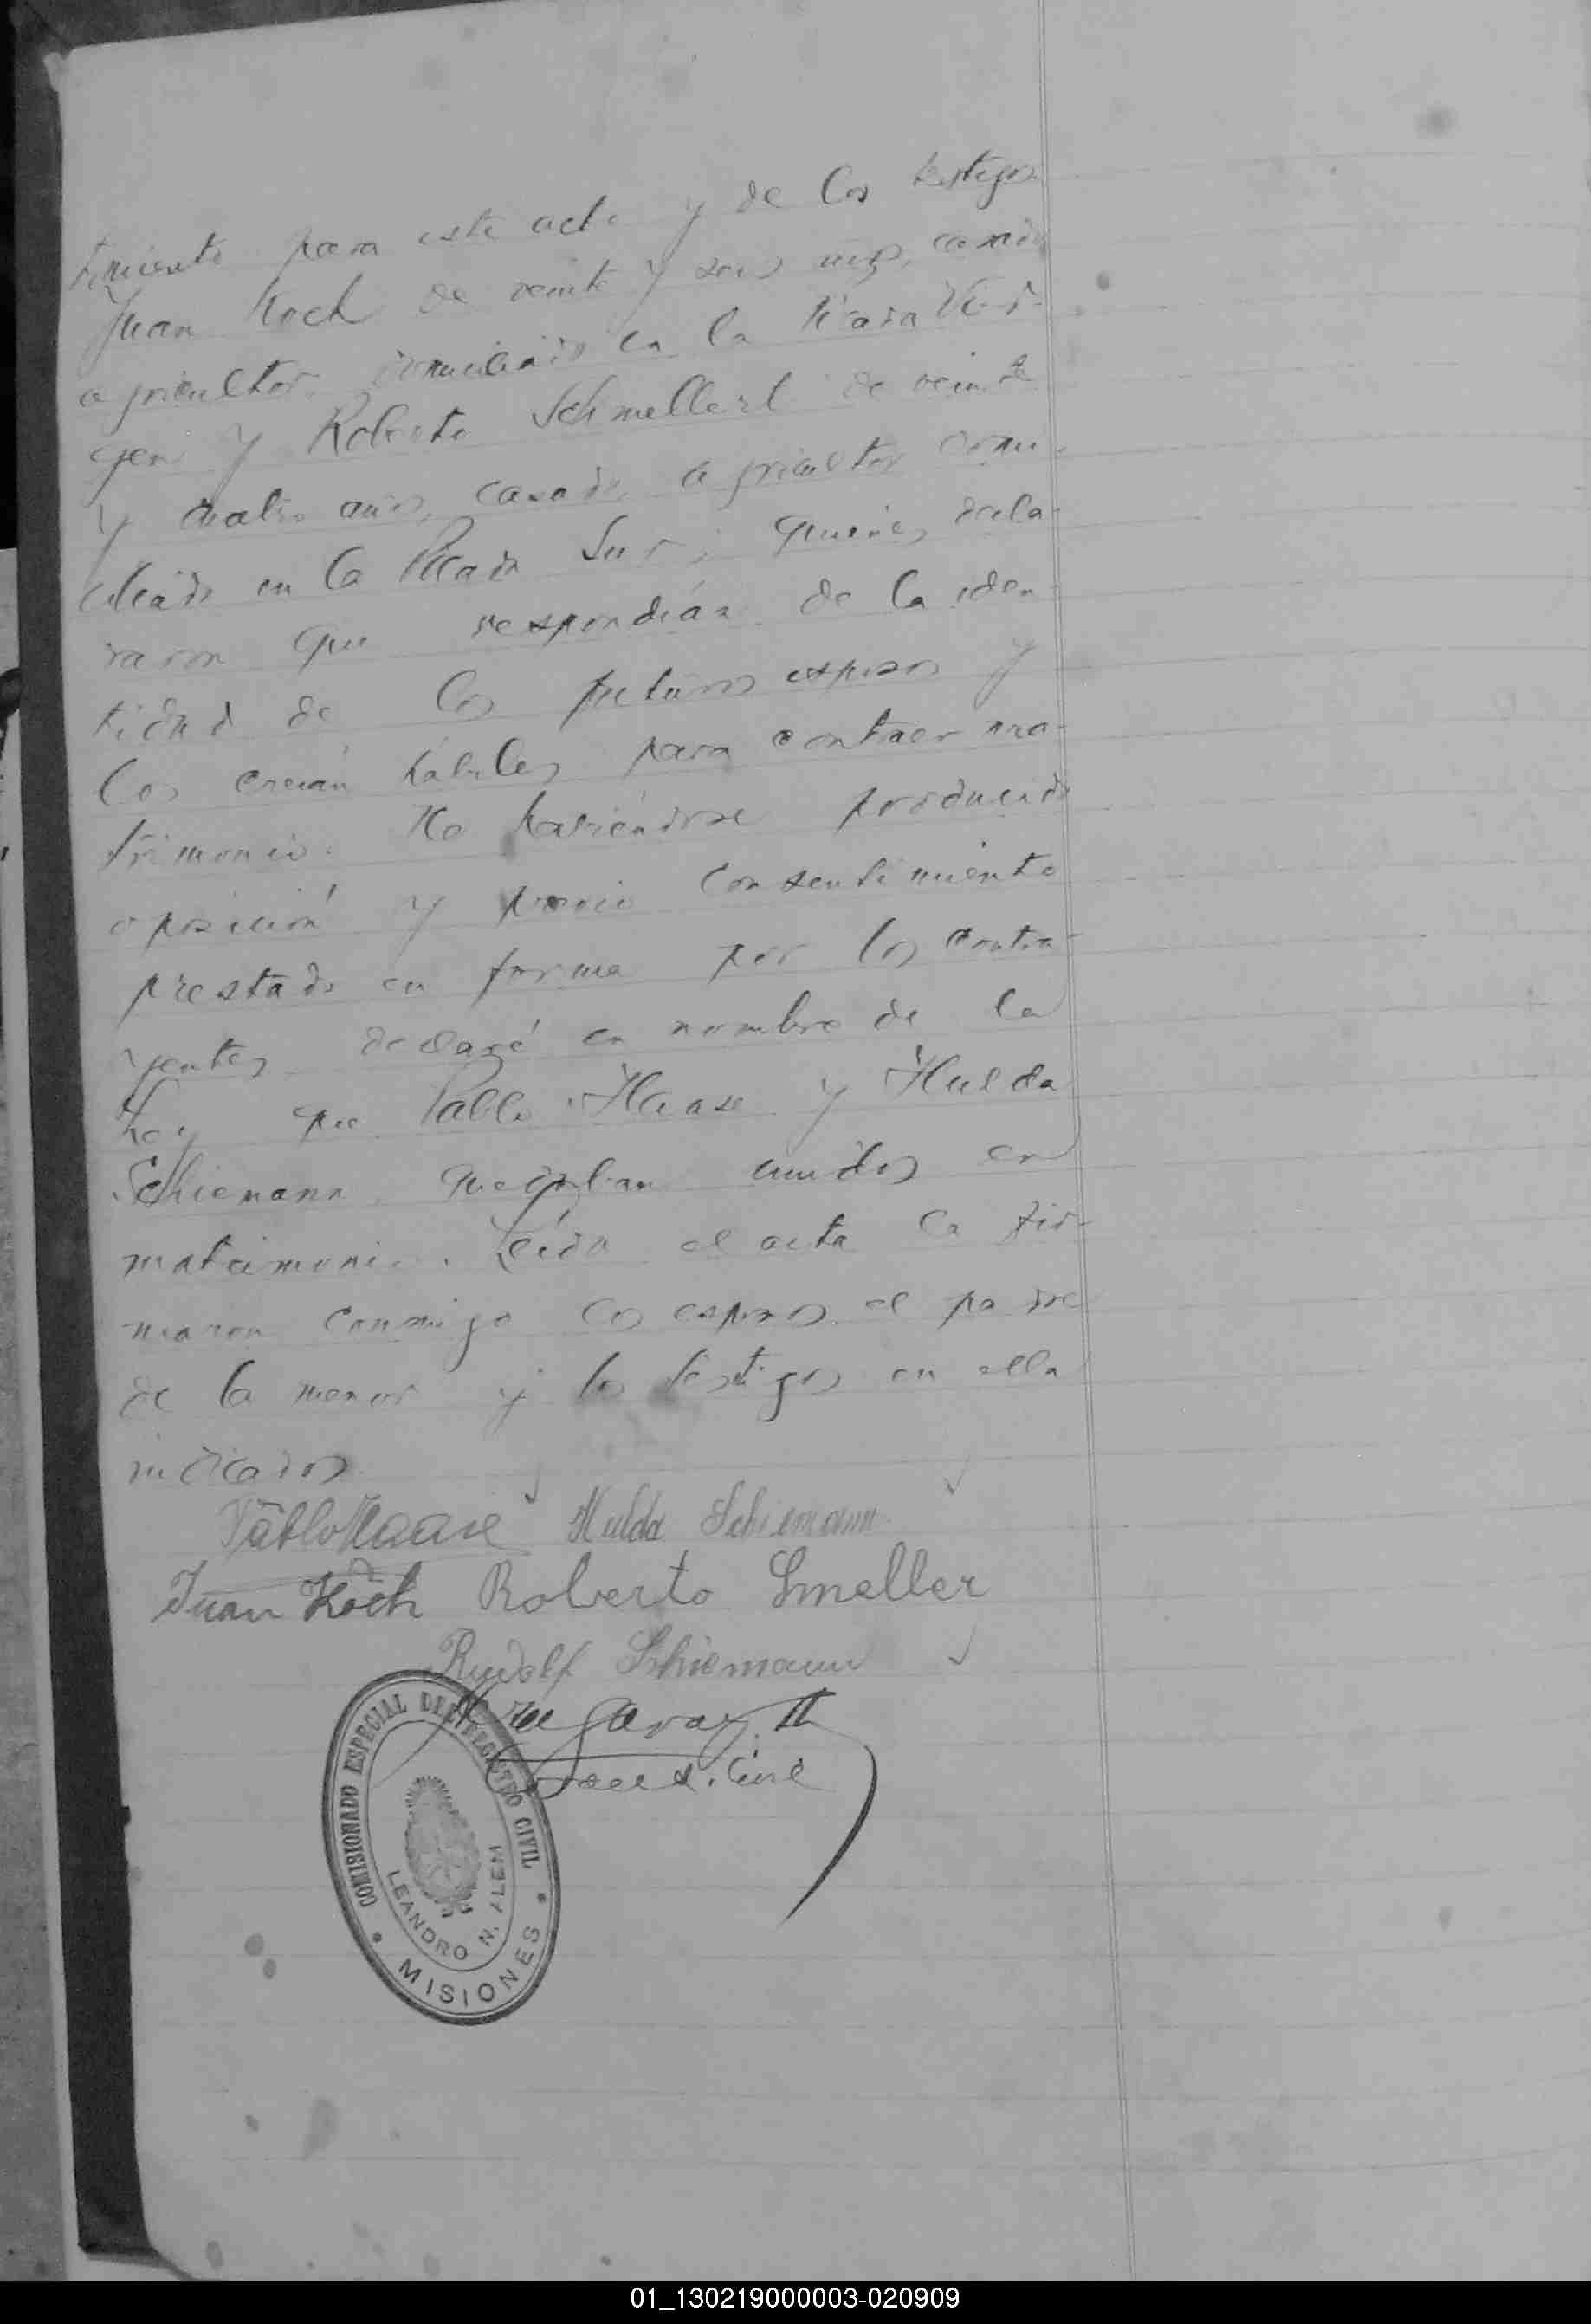 timiento para este acto y de los testigos
Juan Koch de veinte y seis años, casado
agricultor, domiciliado en la Picada Vir-
gen y Roberto Schmellert de veinte
y cuatro años, casado, agricultor domi-
ciliado en la Picada Sur; quienes decla-
raron que respondían de la iden-
tidad de los futuros esposos y
los creían hábiles para contraer ma-
trimonio. No habiéndose producido
oposición y previo consentimiento
prestado en forma por los contra-
yentes declaré en nombre de la
Ley que Pablo Haase y Hulda
Schiemann quedaban unidos en
matrimonio. Leída el acta la fir-
maron conmigo los esposos el padre
de la menor y los testigos en ella
indicados
Pablo Haase Hulda Schiemann
Juan Koch Roberto Smeller
Rudolf Schiemann
Garay
COMISIONADO ESPECIAL DEL REGISTRO CIVIL
LEANDRO N. ALEM
MISIONES
01_130219000003-020909